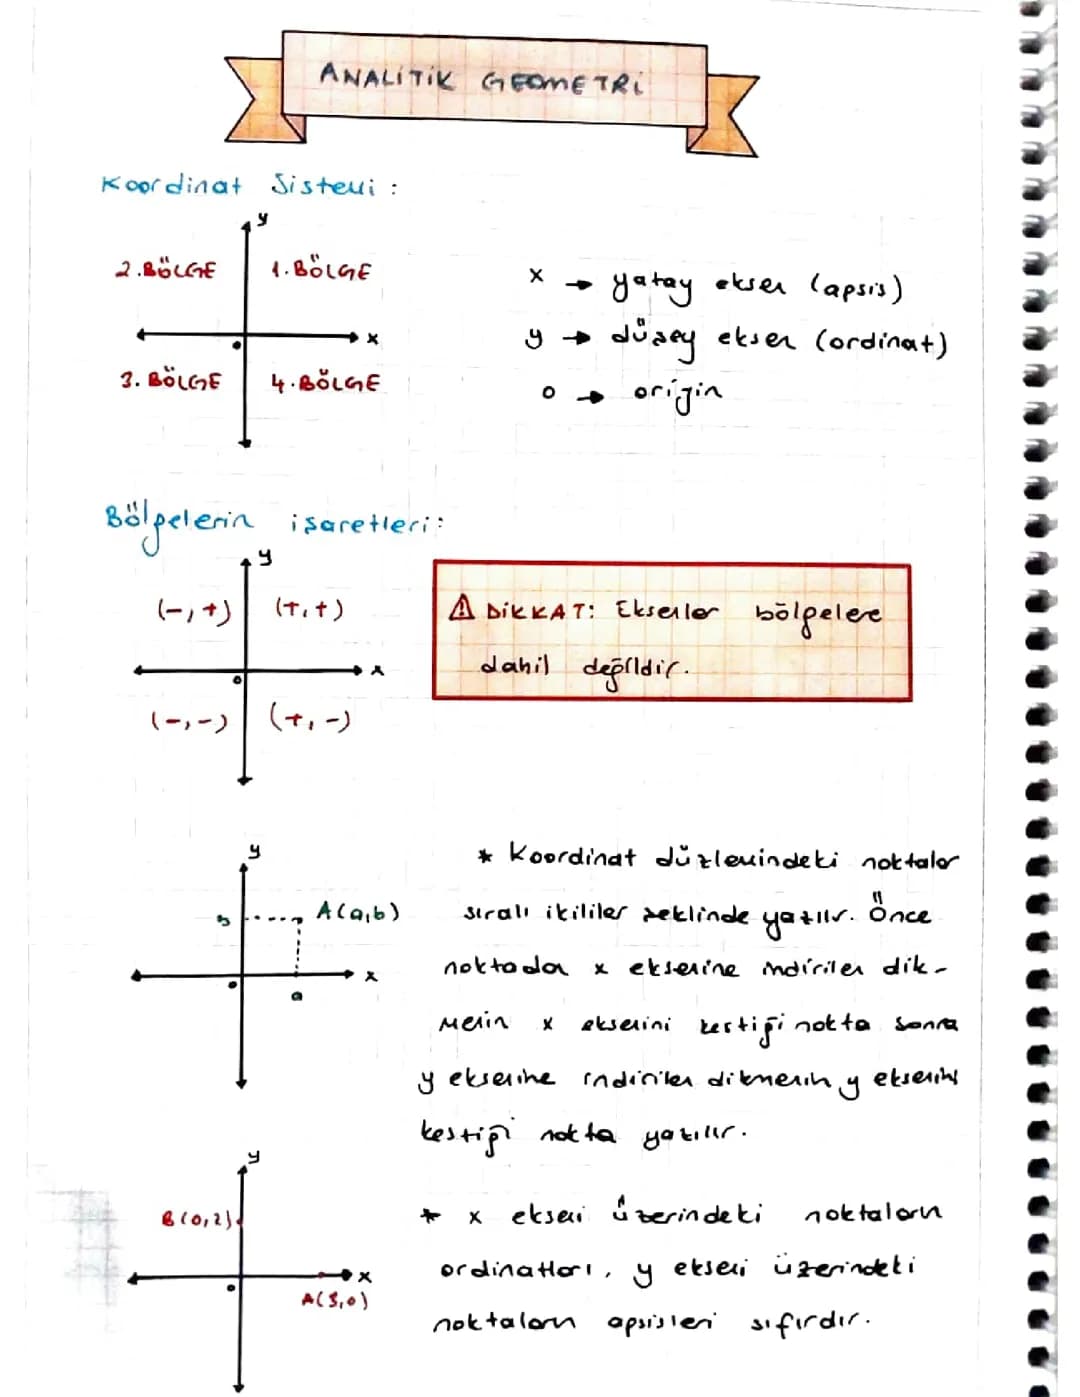 ANALİTİK GEOMETRİ
Koordinat Sistemi :
y
2.BÖLGE 1.BÖLGE
x
o
3. BÖLGE 4.BÖLGE
x → yatay eksen (apsis)
y → düşey eksen (ordinat)
o → orijin
Bölgelerin işaretleri:
y
(-,+) (+,+)
x
o
(-,-) (+,-)
⚠ DİKKAT: Eksenler bölgelere
dahil değildir.
y
b A(a,b)
x
o
a
* Koordinat düzlemindeki noktalar
sıralı ikililer şeklinde yazılır. Önce
noktadan x eksenine indirilen dik-
menin x eksenini kestiği nokta sonra
y eksenine indirilen dikmenin y eksenini
kestiği nokta yazılır.
y
B(0,2)
x
o
A(3,0)
* x ekseni üzerindeki noktaların
ordinatları, y ekseni üzerindeki
noktaların apsisleri sıfırdır.